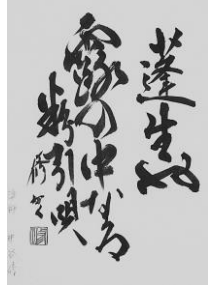 蓬生や
露の中なる
粉引唄